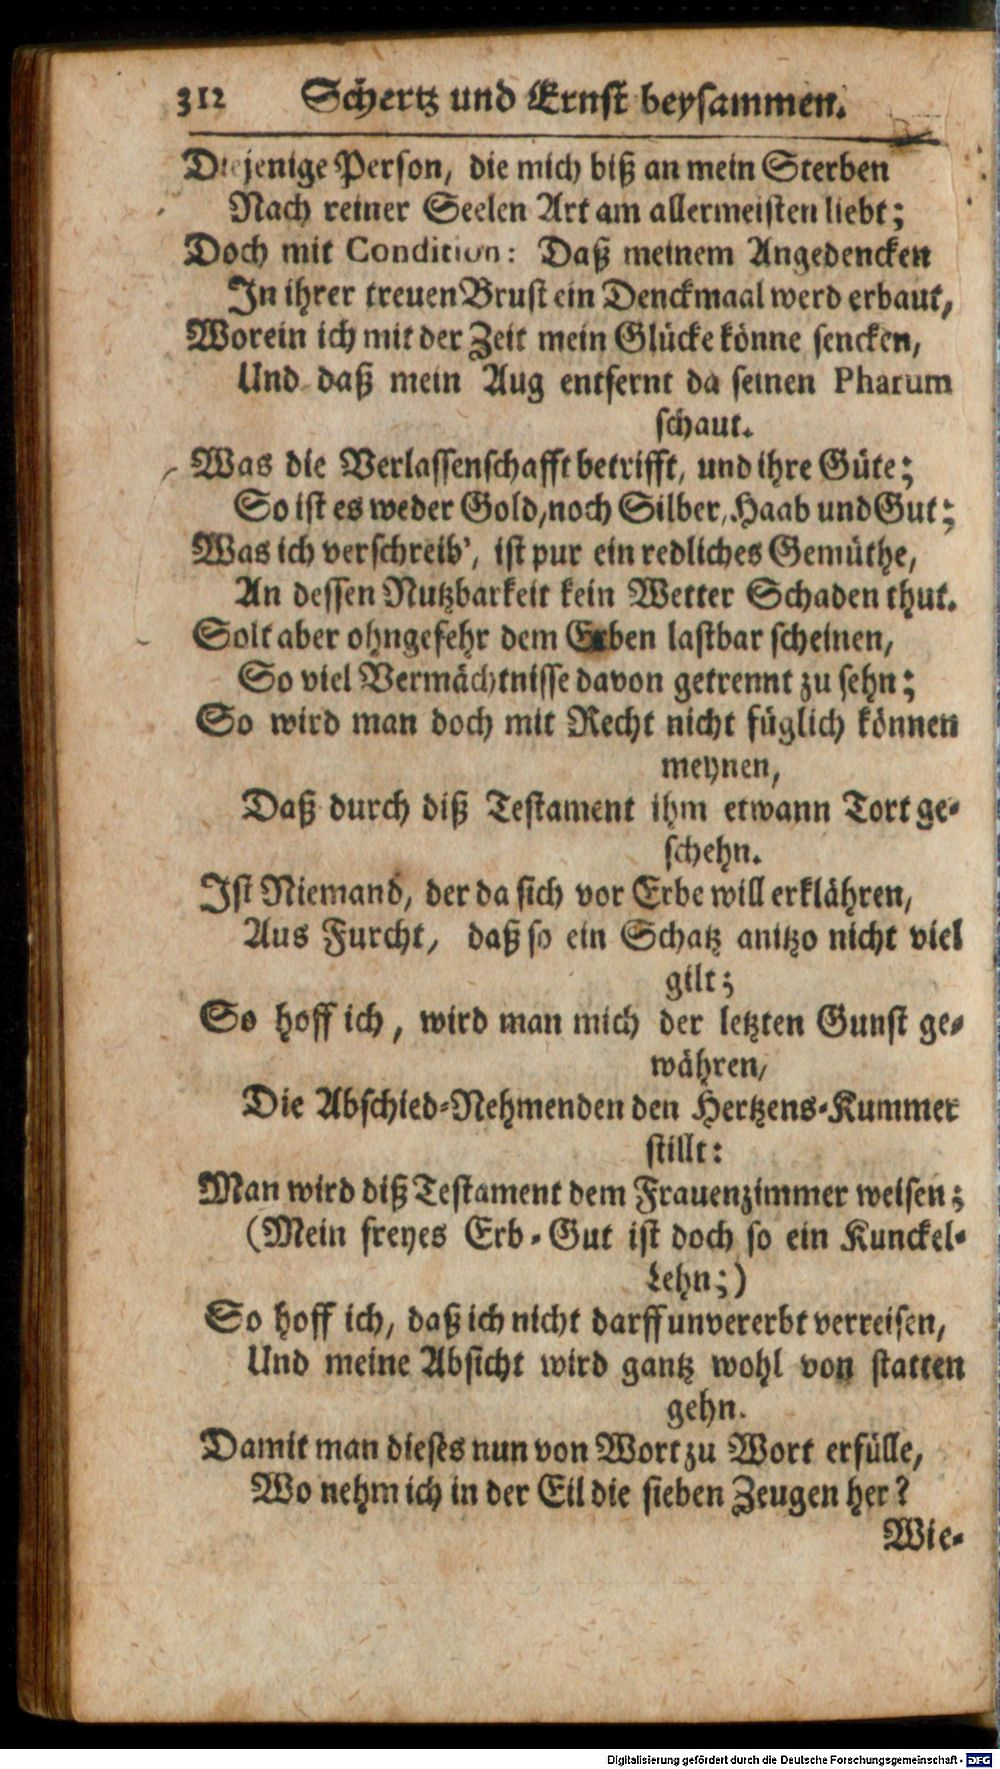 312 Schertz und Ernst beysammen.
Diejenige Person, die mich biß an mein Sterben
Nach reiner Seelen Art am allermeisten liebt;
Doch mit Condition: Daß meinem Angedencken
In ihrer treuen Brust ein Denckmaal werd erbaut,
Worein ich mit der Zeit mein Glücke könne sencken,
Und daß mein Aug entfernt da seinen Pharum
schaut.
Was die Verlassenschafft betrifft, und ihre Güte;
So ist es weder Gold, noch Silber, Haab und Gut;
Was ich verschreib', ist pur ein redliches Gemüthe,
An dessen Nutzbarkeit kein Wetter Schaden thut.
Solt aber ohngefehr dem Erben lastbar scheinen,
So viel Vermächtnisse davon getrennt zu sehn;
So wird man doch mit Recht nicht füglich können
meynen,
Daß durch diß Testament ihm etwann Tort ge-
schehn.
Ist Niemand, der da sich vor Erbe will erklähren,
Aus Furcht, daß so ein Schatz anitzo nicht viel
gilt;
So hoff ich, wird man mich der letzten Gunst ge-
währen,
Die Abschied-Nehmenden den Hertzens-Kummer
stillt:
Man wird diß Testament dem Frauenzimmer weisen;
(Mein freyes Erb-Gut ist doch so ein Kunckel-
Lehn;)
So hoff ich, daß ich nicht darff unvererbt verreisen,
Und meine Absicht wird gantz wohl von statten
gehn.
Damit man dieses nun von Wort zu Wort erfülle,
Wo nehm ich in der Eil die sieben Zeugen her?
Wie-
Digitalisierung gefördert durch die Deutsche Forschungsgemeinschaft - DFG